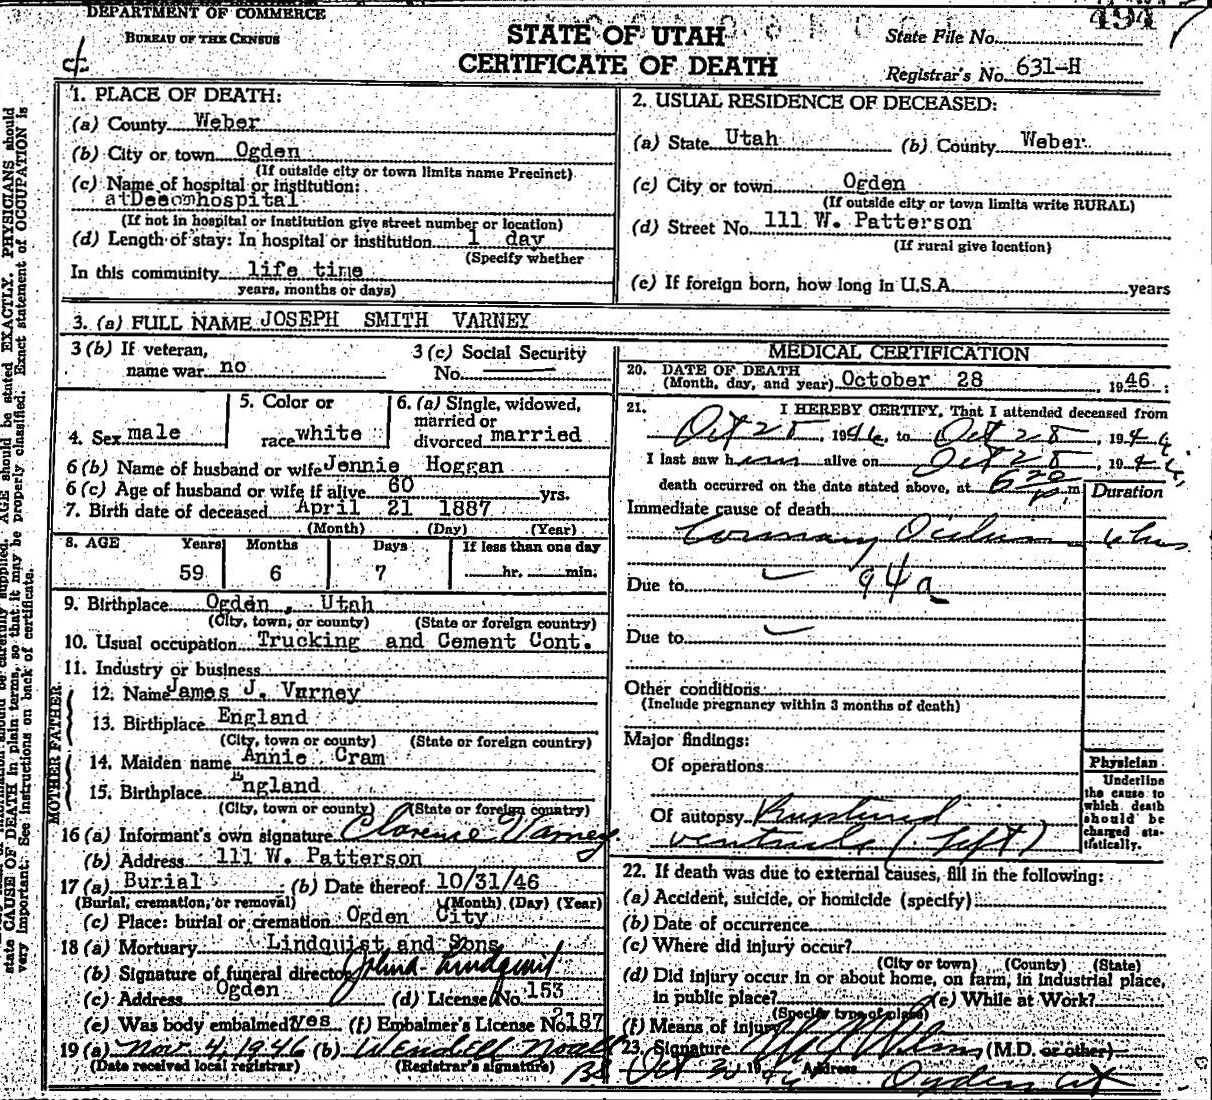 DEPARTMENT OF COMMERCE
BUREAU OF THE CENSUS
STATE OF UTAH
CERTIFICATE OF DEATH
494
State File No.
Registrar's No. 631-H
1. PLACE OF DEATH:
(a) County Weber
(b) City or town Ogden
(If outside city or town limits name Precinct)
(c) Name of hospital or institution:
at Dee omhospital
(If not in hospital or institution give street number or location)
(d) Length of stay: In hospital or institution 1 day
(Specify whether
In this community life time
years, months or days)
2. USUAL RESIDENCE OF DECEASED:
(a) State Utah (b) County Weber
(c) City or town Ogden
(If outside city or town limits write RURAL)
(d) Street No. 111 W. Patterson
(If rural give location)
(e) If foreign born, how long in U.S.A. years
3. (a) FULL NAME JOSEPH SMITH VARNEY
3 (b) If veteran, name war no
3 (c) Social Security No.
4. Sex male
5. Color or race white
6. (a) Single, widowed, married or divorced married
6 (b) Name of husband or wife Jennie Hoggan
6 (c) Age of husband or wife if alive 60 yrs.
7. Birth date of deceased April 21 1887
(Month) (Day) (Year)
8. AGE Years Months Days If less than one day
59 6 7 hr. min.
9. Birthplace Ogden, Utah
(City, town, or county) (State or foreign country)
10. Usual occupation Trucking and Cement Cont.
11. Industry or business
FATHER
12. Name James J. Varney
13. Birthplace England
(City, town or county) (State or foreign country)
MOTHER
14. Maiden name Annie Cram
15. Birthplace England
(City, town or county) (State or foreign country)
16 (a) Informant's own signature Clarence Varney
(b) Address 111 W. Patterson
17 (a) Burial (b) Date thereof 10/31/46
(Burial, cremation, or removal) (Month) (Day) (Year)
(c) Place: burial or cremation Ogden City
18 (a) Mortuary Lindquist and Sons
(b) Signature of funeral director John A Lindquist
(c) Address Ogden (d) License No. 153
(e) Was body embalmed? yes (f) Embalmer's License No. 2187
19 (a) Nov. 4, 1946 (b) Wendell Noall
(Date received local registrar) (Registrar's signature)
MEDICAL CERTIFICATION
20. DATE OF DEATH
(Month, day, and year) October 28 1946
21. I HEREBY CERTIFY, That I attended deceased from
Oct 28, 1946, to Oct 28, 1946
I last saw him alive on Oct 28, 1946,
death occurred on the date stated above, at 6 20 p. m
Duration
Immediate cause of death
Coronary Occlusion 6 hrs.
Due to 94a
Due to
Other conditions
(Include pregnancy within 3 months of death)
Major findings:
Of operations
Of autopsy Ruptured
ventricle (Left)
Physician
Underline
the cause to
which death
should be
charged sta-
tistically.
22. If death was due to external causes, fill in the following:
(a) Accident, suicide, or homicide (specify)
(b) Date of occurrence
(c) Where did injury occur?
(City or town) (County) (State)
(d) Did injury occur in or about home, on farm, in industrial place,
in public place? (e) While at Work?
(Specify type of place)
(f) Means of injury
23. Signature (M.D. or other)
Oct 30 1946 Address Ogden Ut
AGE should be stated EXACTLY. PHYSICIANS should
state CAUSE OF DEATH in plain terms, so that it may be properly classified. Exact statement of OCCUPATION is
very important. See instructions on back of certificate.